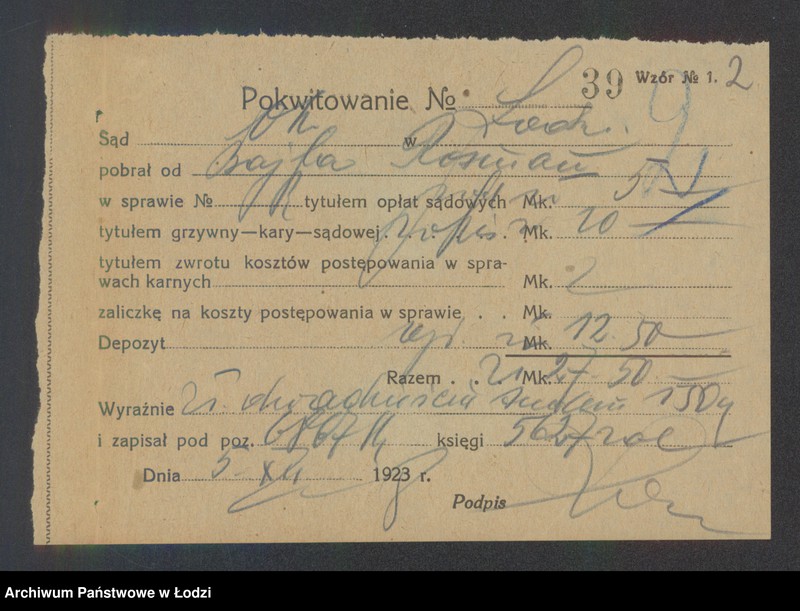 39 Wzór № 1. 2
Pokwitowanie №
Sąd w Łodzi.
pobrał od Bajla Rosman
w sprawie № tytułem opłat sądowych Mk. 5
tytułem grzywny—kary—sądowej. Mk. 10
tytułem zwrotu kosztów postępowania w spra-
wach karnych Mk.
zaliczkę na koszty postępowania w sprawie . . Mk.
Depozyt Mk. 12.50
Razem . . . Mk. 27.50
Wyraźnie Zł. dwadzieścia siedem i 50 g
i zapisał pod poz. księgi
Dnia 5 XII 1923 r.
Podpis
Archiwum Państwowe w Łodzi